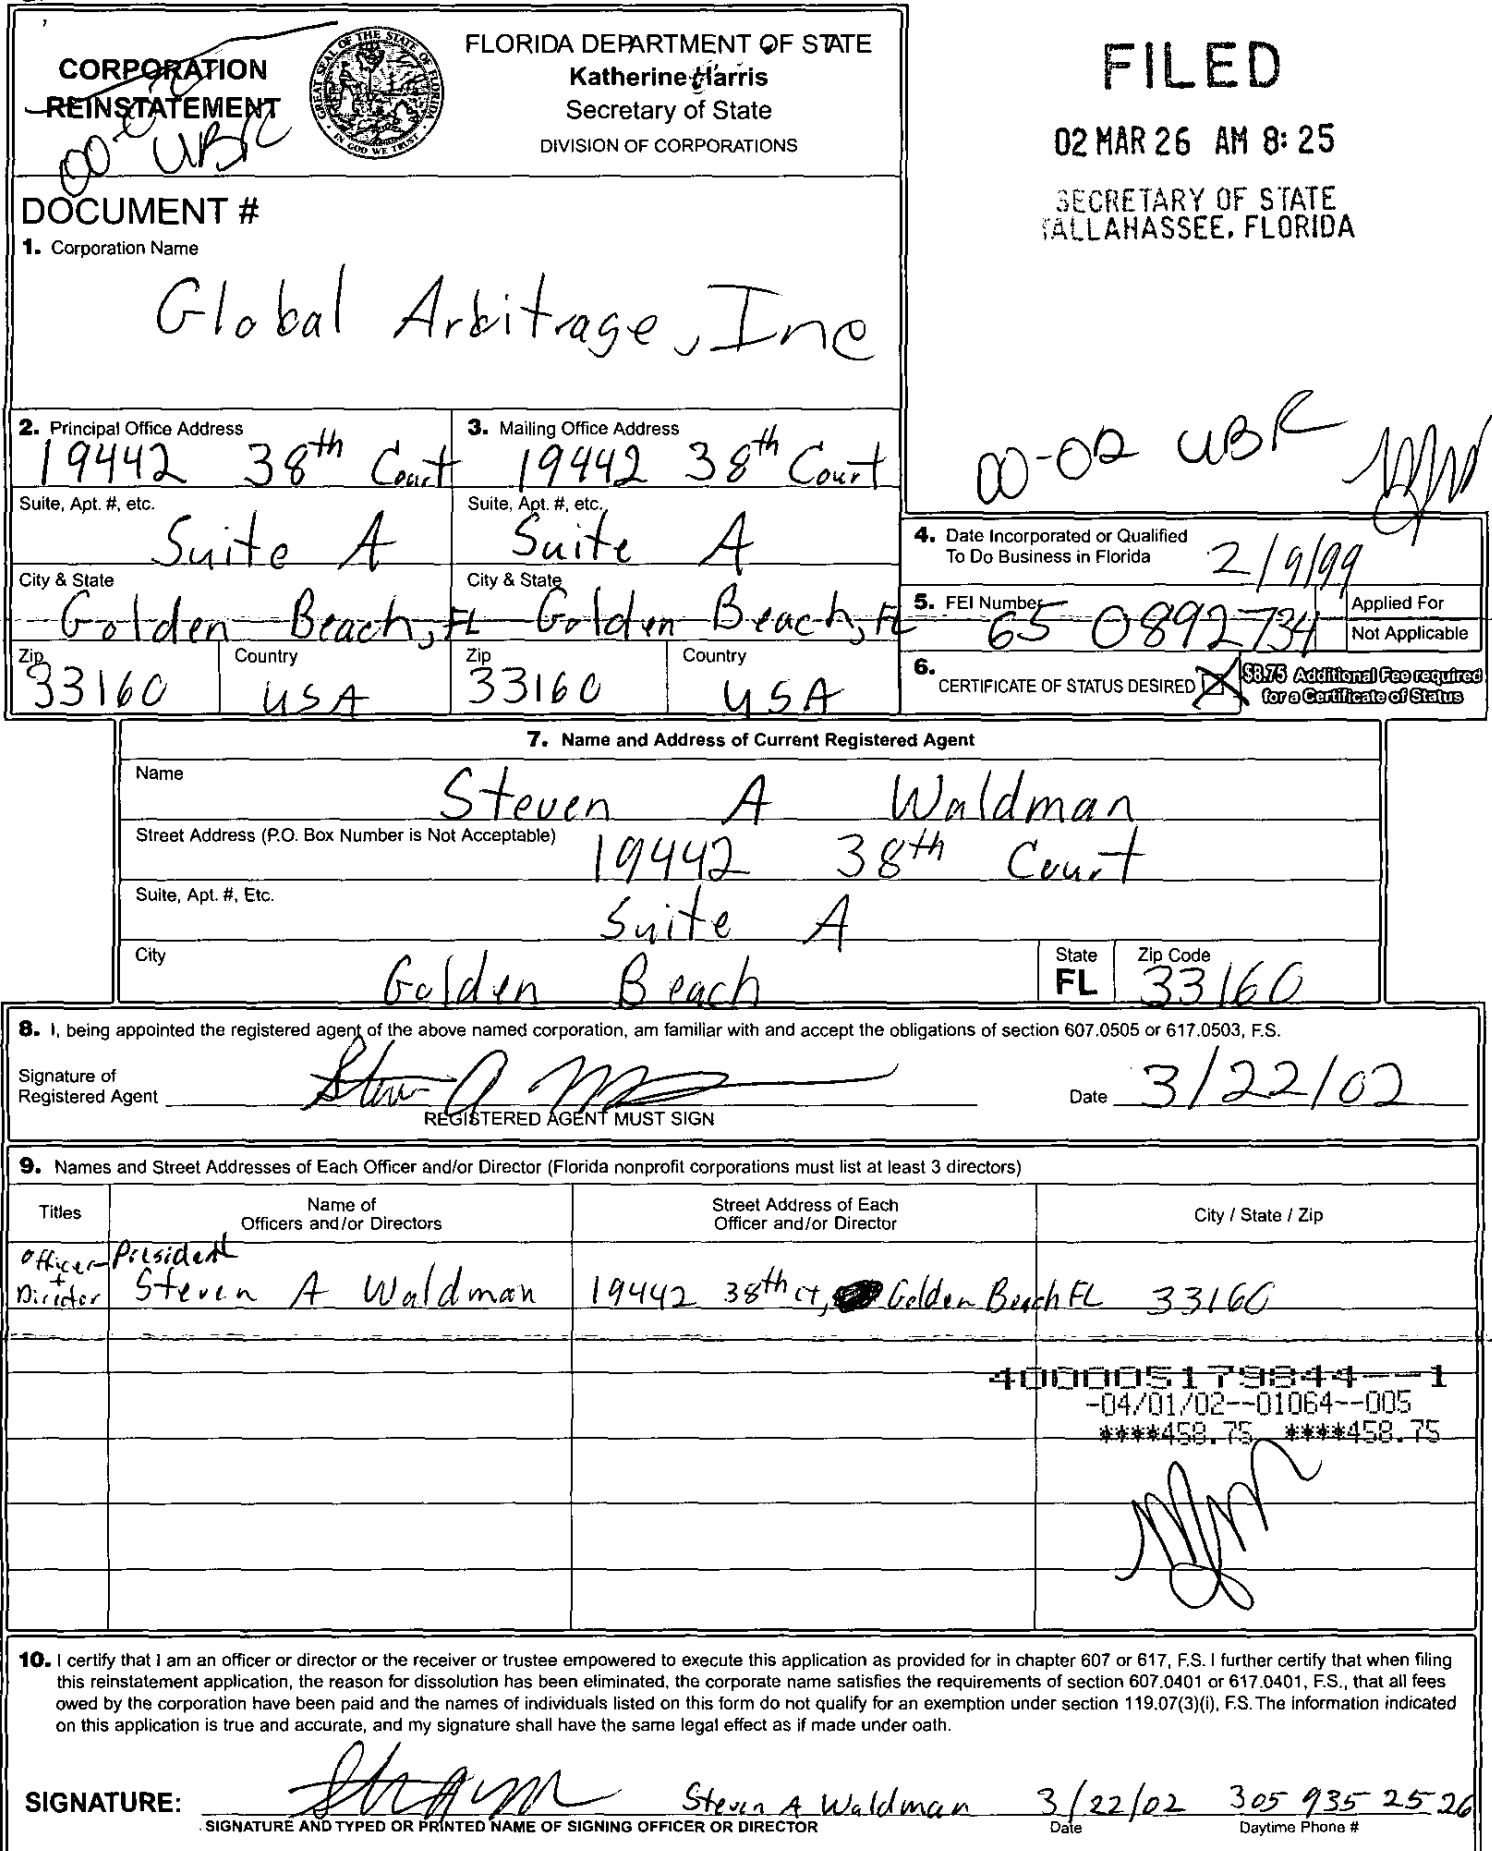 CORPORATION
REINSTATEMENT
00-
UBR
GREAT SEAL OF THE STATE OF FLORIDA
IN GOD WE TRUST
FLORIDA DEPARTMENT OF STATE
Katherine Harris
Secretary of State
DIVISION OF CORPORATIONS
FILED
02 MAR 26 AM 8:25
SECRETARY OF STATE
TALLAHASSEE, FLORIDA
DOCUMENT #
1. Corporation Name
Global Arbitrage, Inc
00-02 UBR
2. Principal Office Address
19442 38th Court
3. Mailing Office Address
19442 38th Court
Suite, Apt. #, etc.
Suite A
Suite, Apt. #, etc.
Suite A
City & State
Golden Beach, FL
City & State
Golden Beach, FL
Zip
33160
Country
USA
Zip
33160
Country
USA
4. Date Incorporated or Qualified
To Do Business in Florida
2/9/99
5. FEI Number
65 0892734
Applied For
Not Applicable
6. CERTIFICATE OF STATUS DESIRED X
$8.75 Additional Fee required
for a Certificate of Status
7. Name and Address of Current Registered Agent
Name
Steven A Waldman
Street Address (P.O. Box Number is Not Acceptable)
19442 38th Court
Suite, Apt. #, Etc.
Suite A
City
Golden Beach
State
FL
Zip Code
33160
8. I, being appointed the registered agent of the above named corporation, am familiar with and accept the obligations of section 607.0505 or 617.0503, F.S.
Signature of
Registered Agent
REGISTERED AGENT MUST SIGN
Date 3/22/02
9. Names and Street Addresses of Each Officer and/or Director (Florida nonprofit corporations must list at least 3 directors)
Titles
Name of
Officers and/or Directors
Street Address of Each
Officer and/or Director
City / State / Zip
Officer- President
+
Director Steven A Waldman 19442 38th Ct, Golden Beach FL 33160
4000005179844--1
-04/01/02--01064--005
****458.75 ****458.75
10. I certify that I am an officer or director or the receiver or trustee empowered to execute this application as provided for in chapter 607 or 617, F.S. I further certify that when filing
this reinstatement application, the reason for dissolution has been eliminated, the corporate name satisfies the requirements of section 607.0401 or 617.0401, F.S., that all fees
owed by the corporation have been paid and the names of individuals listed on this form do not qualify for an exemption under section 119.07(3)(i), F.S. The information indicated
on this application is true and accurate, and my signature shall have the same legal effect as if made under oath.
SIGNATURE: Steven A Waldman 3/22/02 305 935 2526
SIGNATURE AND TYPED OR PRINTED NAME OF SIGNING OFFICER OR DIRECTOR
Date
Daytime Phone #